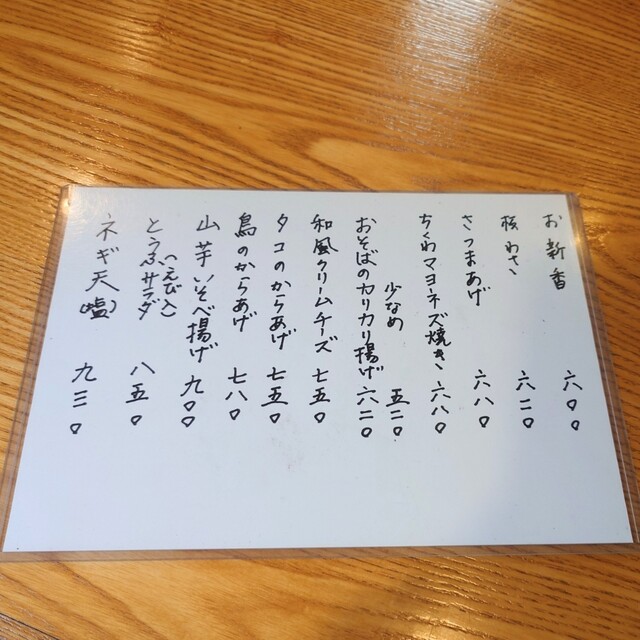 お新香 六〇〇
板わさ 六二〇
さつまあげ 六八〇
ちくわマヨーネズ焼き 六八〇
少なめ 五二〇
おそばのカリカリ揚げ 六二〇
和風クリムチーズ 七五〇
タコのからあげ 七五〇
鳥のからあげ 七八〇
山芋いそべ揚げ 九〇〇
(えび入)
とうふサラダ 八五〇
ネギ天(塩) 九三〇